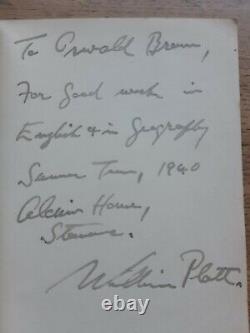 To Oswald Brown,
For good work in
English & in Geography
Summer Term, 1940
Alcuin House,
William Platt.